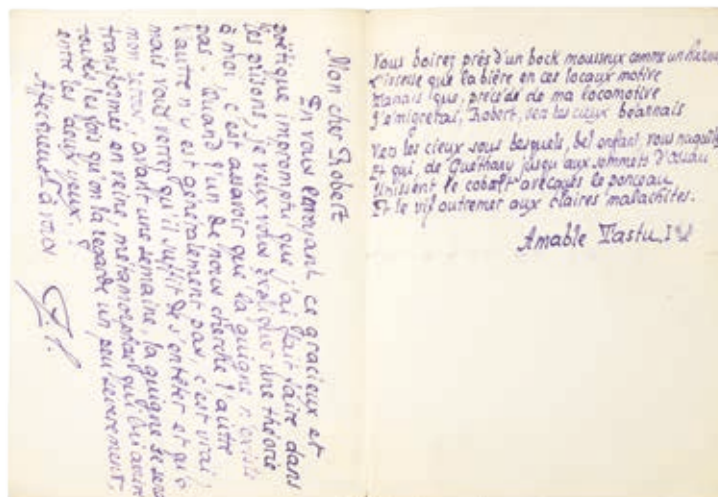 Mon cher Robert
En vous envoyant ce gracieux et
poétique impromptu que j'ai fait faire dans
les prisons, je veux vous expliquer une théorie
à moi, c'est assavoir que la guigne n'existe
pas. Quand l'un de nous cherche l'autre
l'autre n'y est généralement pas, c'est vrai;
mais vous verrez qu'il suffit de s'entêter et qu'à
mon retour, avant une semaine, la guigne se sera
transformée en veine, métamorphose qui lui arrive
toutes les fois qu'on la regarde un peu sévèrement,
entre les deux yeux.
à vous
Vous boirez près d'un bock mousseux comme un
L'ivresse que la bière en ces locaux motive
Tandis que, précédé de ma locomotive
J'émigrerai, Robert, vers les cieux béarnais
Vers les cieux sous lesquels, bel enfant, vous naquîtes
Et qui, de Guéthary jusqu'aux sommets d'Ossau
Unissent le cobalt avecques le ponceau
Et le vif outremer aux claires malachites.
Amable Tastu